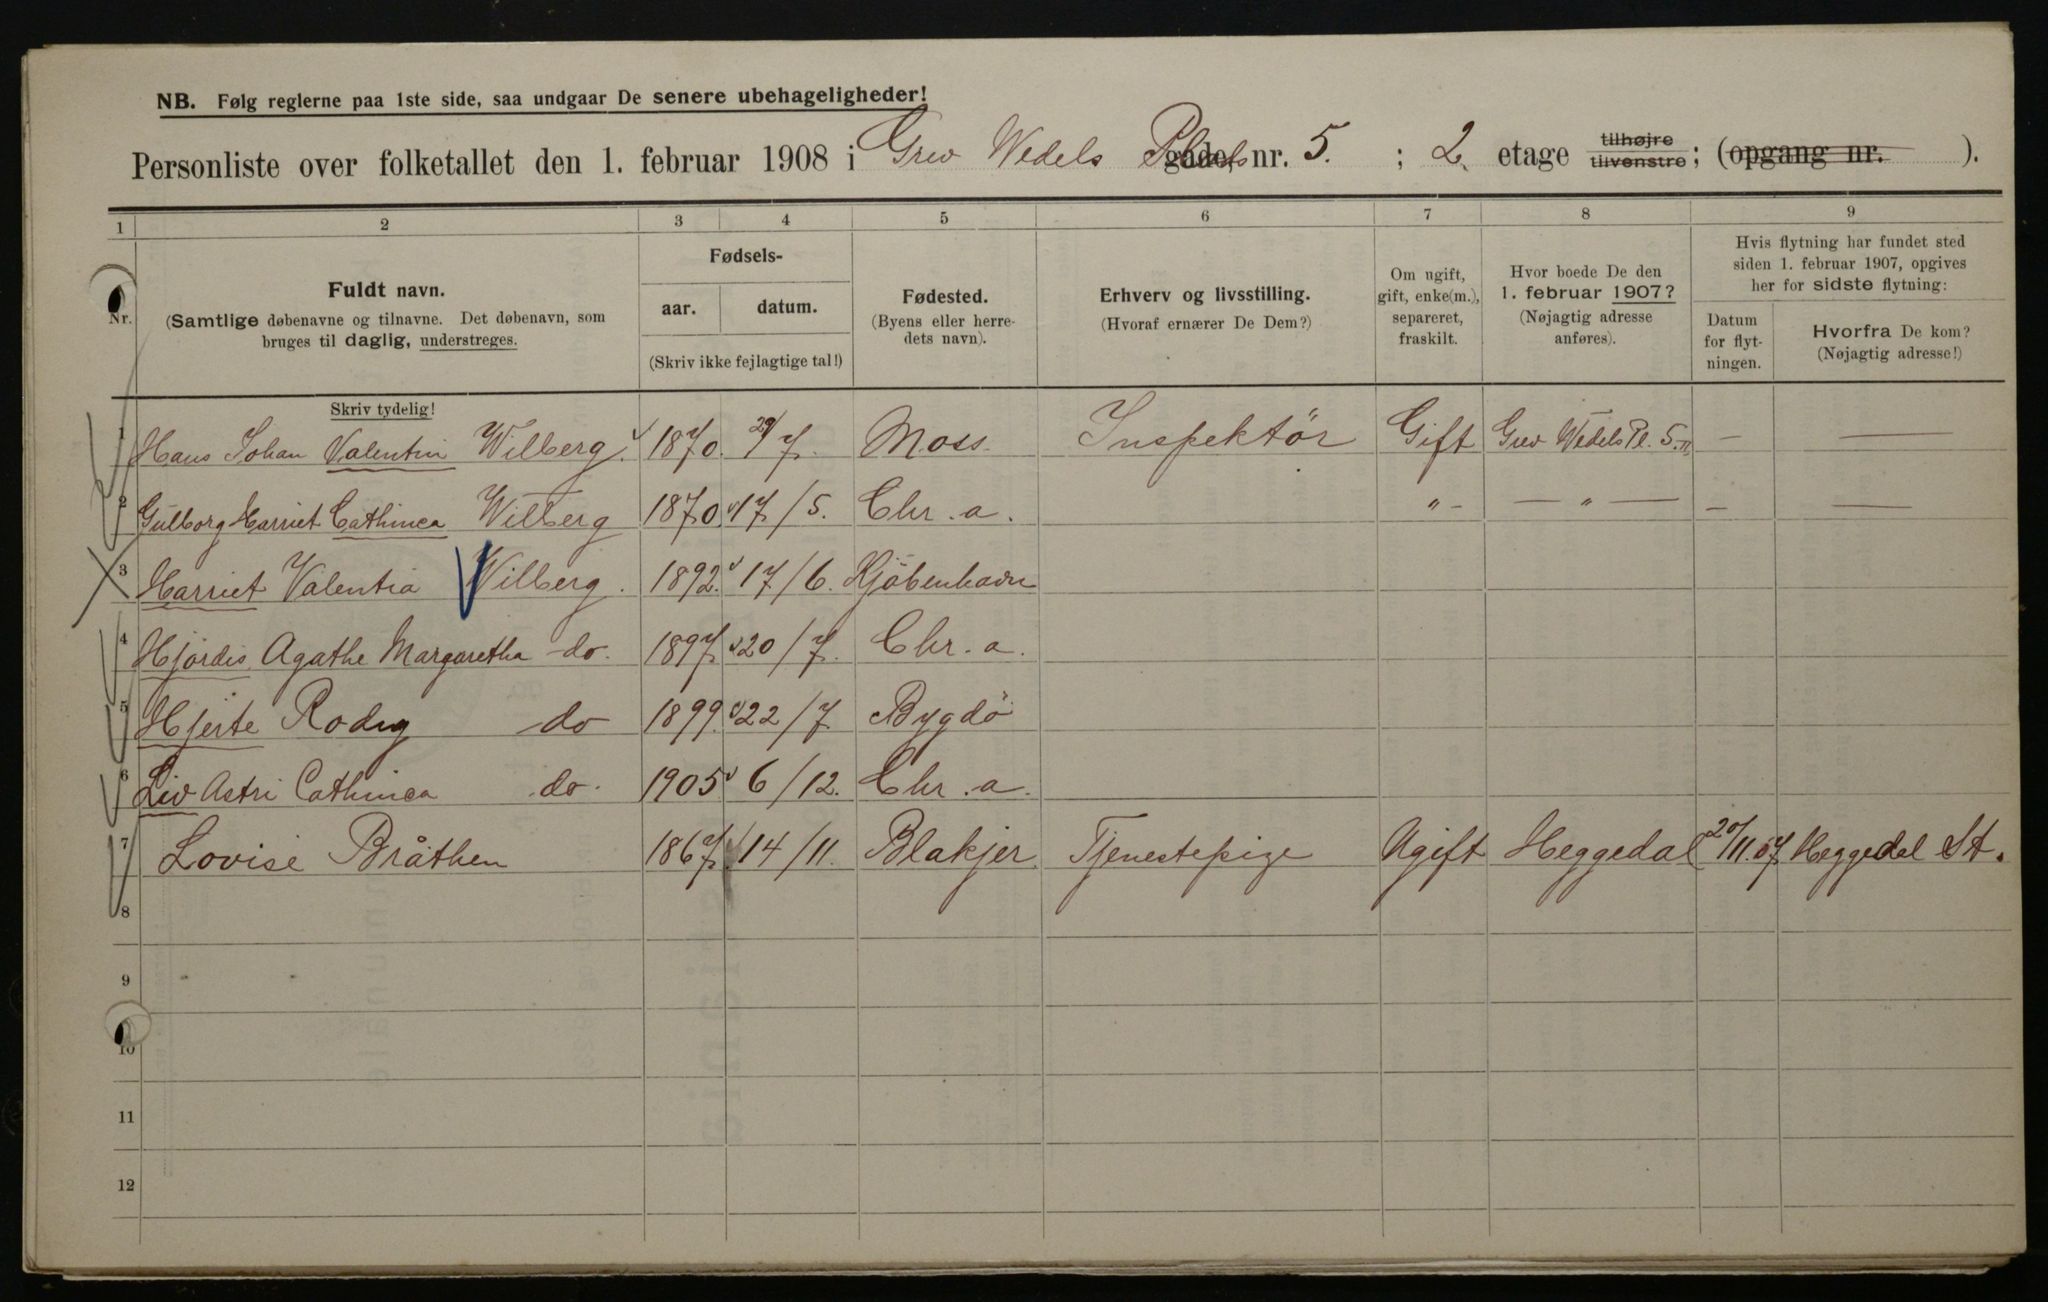 NB. Følg reglerne paa 1ste side, saa undgaar De senere ubehageligheder!
Personliste over folketallet den 1. februar 1908 i Grev Wedels Plads gade, nr. 5. ; 2. etage tilhøjre tilvenstre ; (opgang nr. ).
1 2 3 4 5 6 7 8 9
Nr.
Fuldt navn.
(Samtlige døbenavne og tilnavne. Det døbenavn, som
bruges til daglig, understreges.
Skriv tydelig!
Fødsels-
aar. datum.
(Skriv ikke fejlagtige tal!)
Fødested.
(Byens eller herre-
dets navn).
Erhverv og livsstilling.
(Hvoraf ernærer De Dem?)
Om ugift,
gift, enke(m.),
separeret,
fraskilt.
Hvor boede De den
1. februar 1907?
(Nøjagtig adresse
anføres).
Hvis flytning har fundet sted
siden 1. februar 1907, opgives
her for sidste flytning:
Datum
for flyt-
ningen.
Hvorfra De kom?
(Nøjagtig adresse!)
1 Hans Johan Valentin Wilberg. 1870. 29/7. Moss. Inspektör Gift Grev Wedels Pl. 5. II, — —
2 Gulborg Harriet Cathinca Wilberg 1870 17/5. Chr. a. " - — " — — —
3 Harriet Valentia Wilberg. 1892. 17/6. Kjöbenhavn
4 Hjördis Agathe Margaretha do. 1897 20/7. Chr. a.
5 Hjerte Rodny do 1899. 22/7 Bygdö
6 Liv Astri Cathinca do. 1905 6/12. Chr. a.
7 Lovise Bråthen 1867. 14/11. Blakjer Tjenestepige Ugift Heggedal 20/11.07 Heggedal St.
8
9
10
11
12